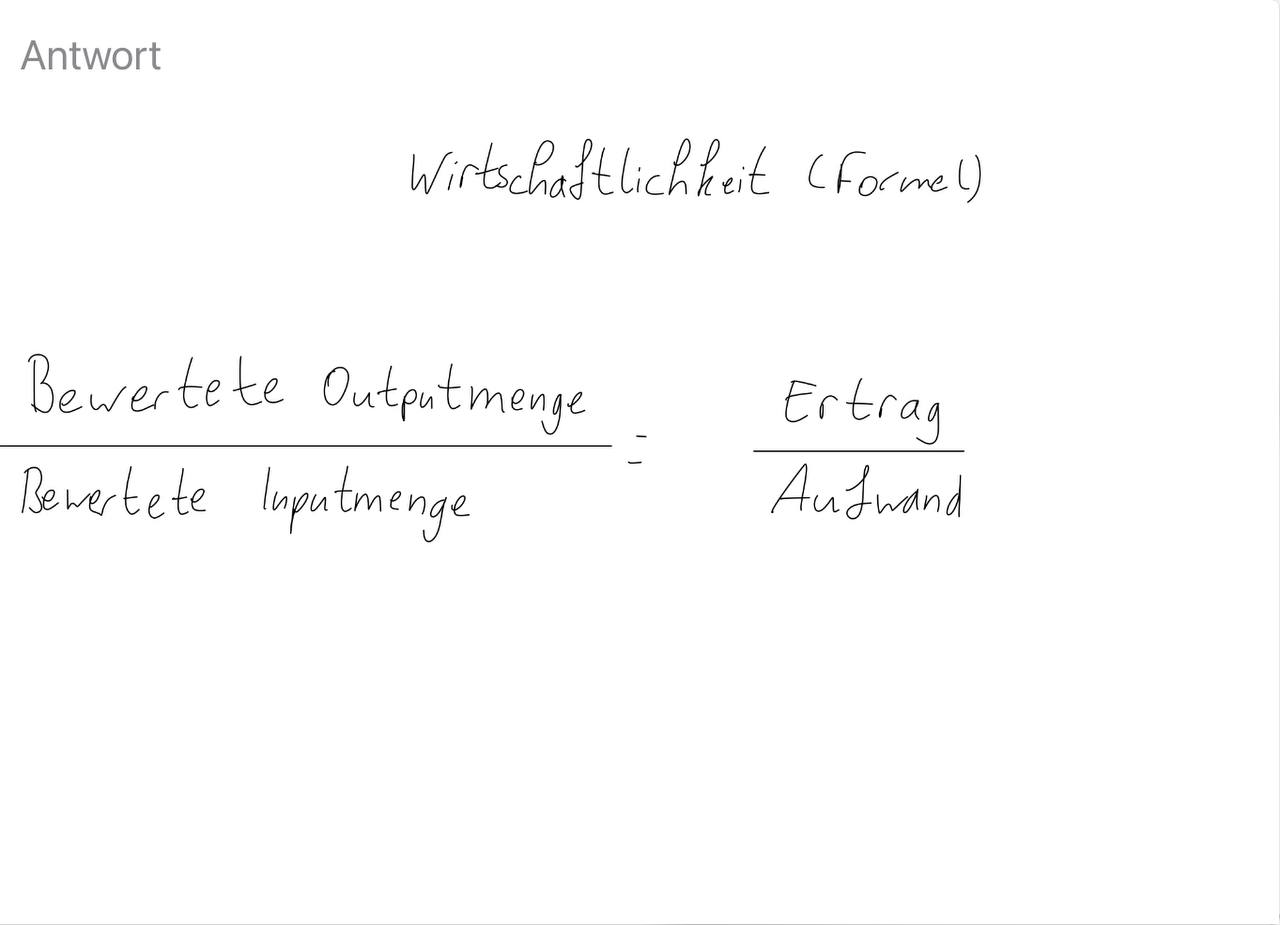 Antwort
Wirtschaftlichkeit (Formel)
Bewertete Outputmenge
=
Ertrag
Bewertete Inputmenge
Aufwand